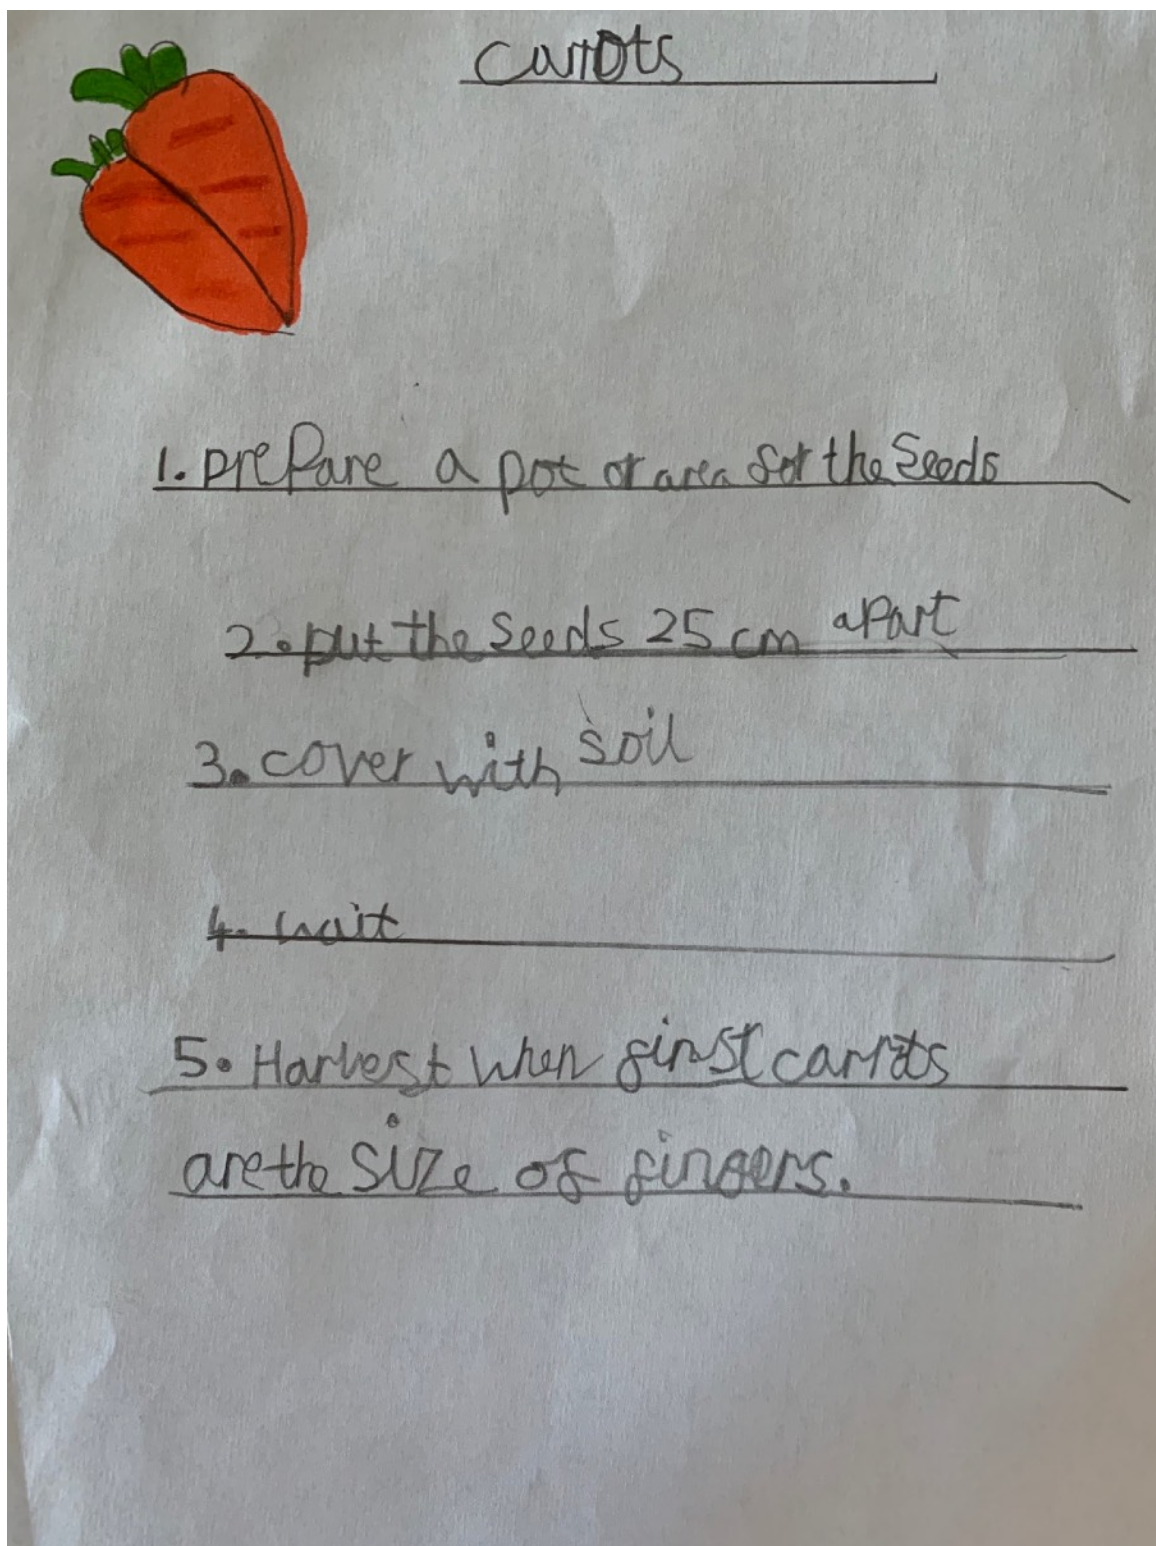 carrots
1. prepare a pot or area for the seeds
2. put the seeds 25 cm apart
3. cover with soil
4. wait
5. Harvest when first carrots
are the size of fingers.